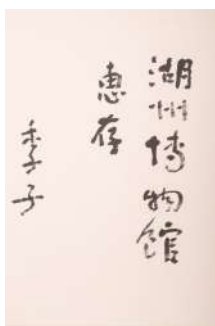 湖州博物館
惠存
季子